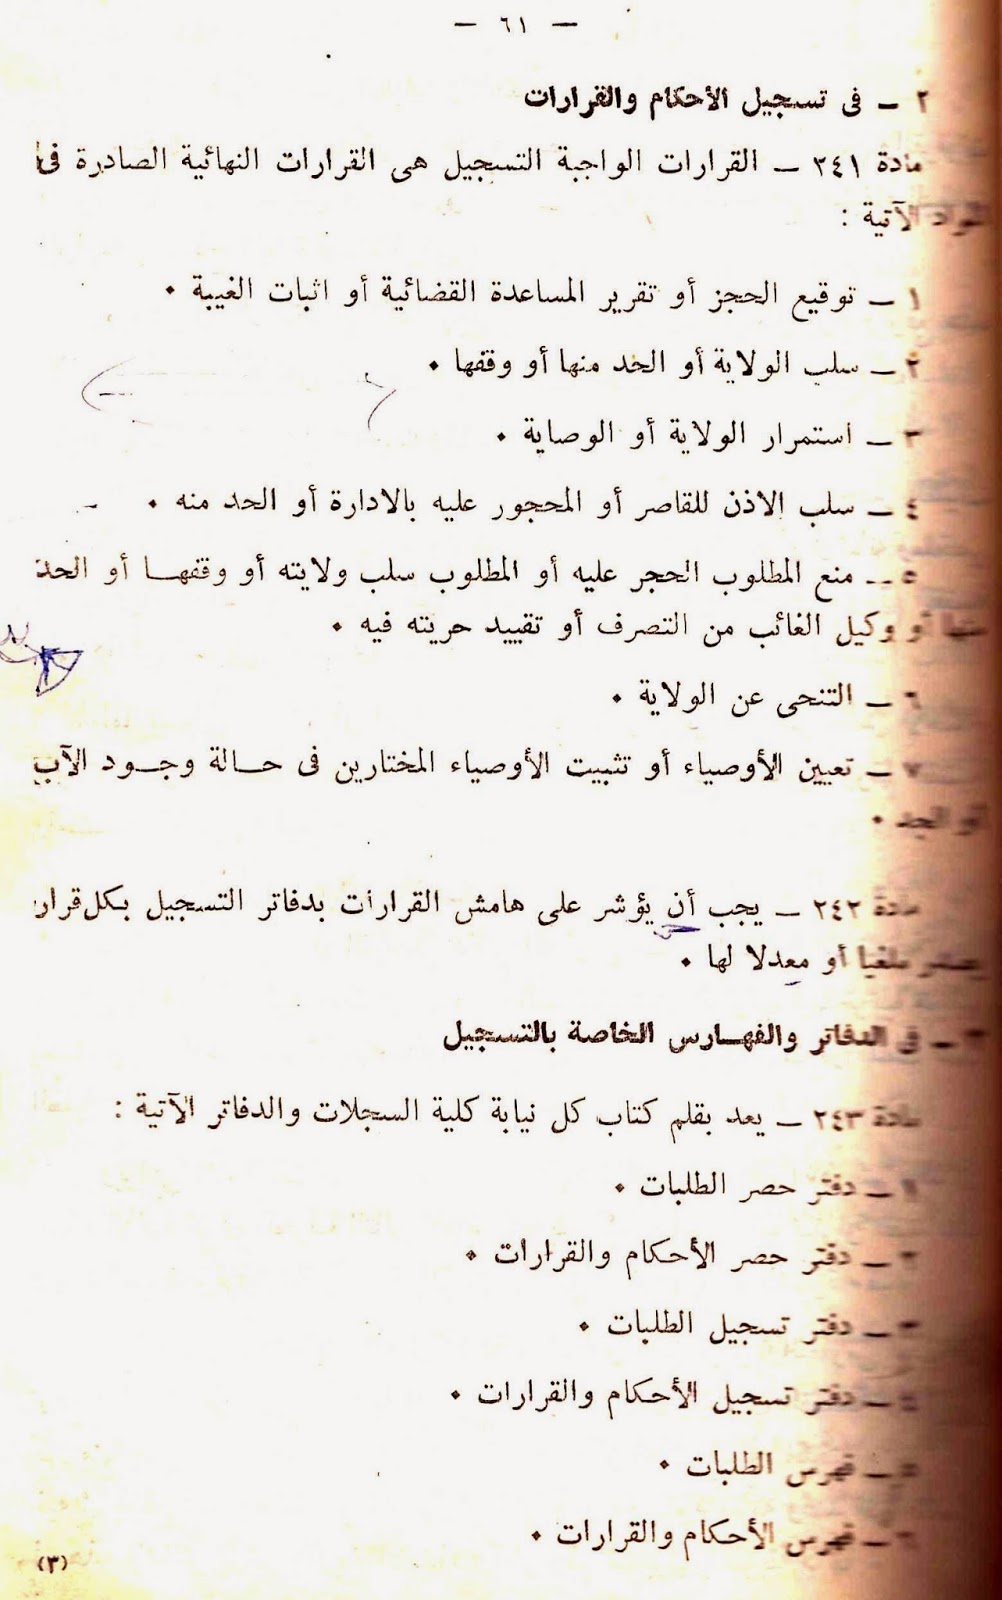 — ٦١ —
٢ — فى تسجيل الأحكام والقرارات
مادة ٢٤١ — القرارات الواجبة التسجيل هى القرارات النهائية الصادرة فى
المواد الآتية :
١ — توقيع الحجز أو تقرير المساعدة القضائية أو اثبات الغيبة ٠
٢ — سلب الولاية أو الحد منها أو وقفها ٠
٣ — استمرار الولاية أو الوصاية ٠
٤ — سلب الاذن للقاصر أو المحجور عليه بالادارة أو الحد منه ٠
٥ — منع المطلوب الحجر عليه أو المطلوب سلب ولايته أو وقفهـا أو الحد
منها أو وكيل الغائب من التصرف أو تقييد حريته فيه ٠
٦ — التنحى عن الولاية ٠
٧ — تعيين الأوصياء أو تثبيت الأوصياء المختارين فى حـالة وجـود الآب
أو الجد ٠
مادة ٢٤٢ — يجب أن يؤشر على هامش القرارات بدفاتر التسجيل بكل قرار
يصدر ملغيا أو معدلا لها ٠
٣ — فى الدفاتر والفهـارس الخاصة بالتسجيل
مادة ٢٤٣ — يعد بقلم كتاب كل نيابة كلية السجلات والدفاتر الآتية :
١ — دفتر حصر الطلبات ٠
٢ — دفتر حصر الأحكام والقرارات ٠
٣ — دفتر تسجيل الطلبات ٠
٤ — دفتر تسجيل الأحكام والقرارات ٠
٥ — فهرس الطلبات ٠
٦ — فهرس الأحكام والقرارات ٠
(٣)